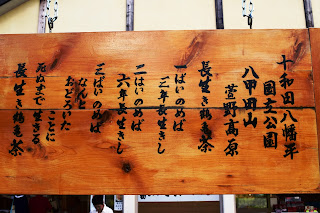 十和田八幡平
国立公園
八甲田山
萱野高原
長生き鶴亀茶
一ぱいのめば
三年長生きし
二はいのめば
六年長生きし
三ばいのめば
なんと
おどろいた
ことに
死ぬまで生きる
長生き鶴亀茶